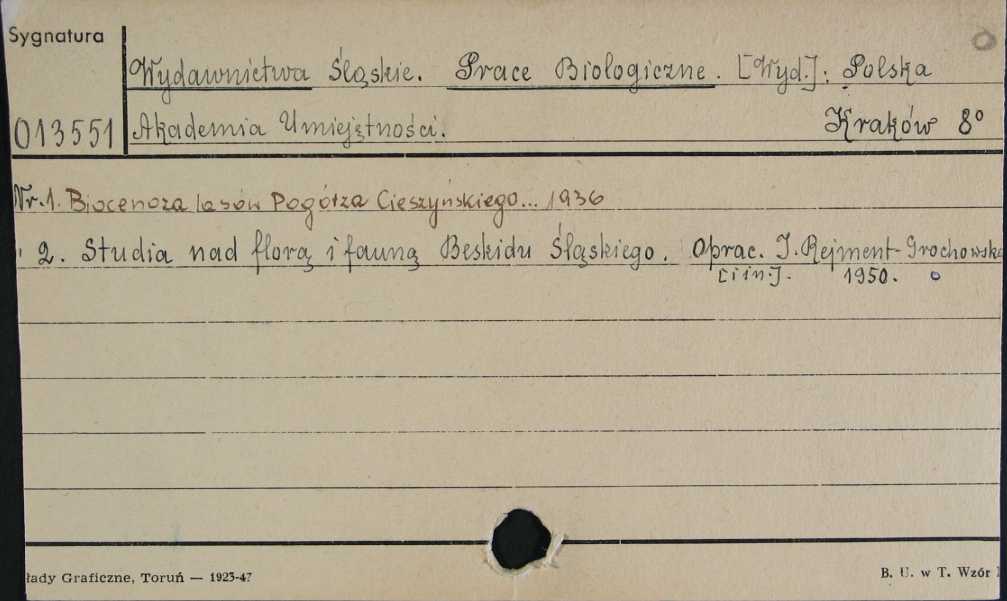 Sygnatura
Wydawnictwa Śląskie. Prace Biologiczne. [Wyd.]: Polska
013551 Akademia Umiejętności. Kraków 8°
Nr. 1. Biocenoza lasów Pogórza Cieszyńskiego... 1936
" 2. Studia nad florą i fauną Beskidu Śląskiego. Oprac. I. Rejment-Grochowska
[i in.]. 1950.
łady Graficzne, Toruń — 1923-47 B. U. w T. Wzór 1